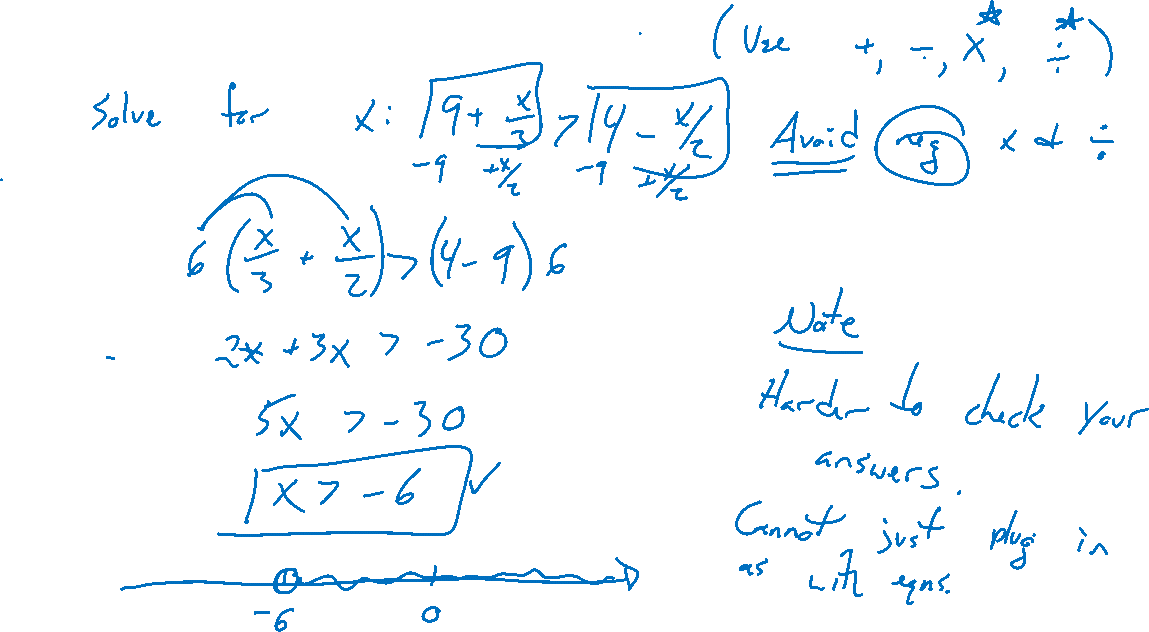 (Use +, -, x*, ÷*)
Solve for x: 9 + x/3 > 4 - x/2 Avoid neg x & ÷
-9 +x/2 -9 +x/2
6 (x/3 + x/2) > (4 - 9) 6
2x + 3x > -30
5x > -30
x > -6 ✓
-6 0
Note
Harder to check your
answers.
Cannot just plug in
as with eqns.